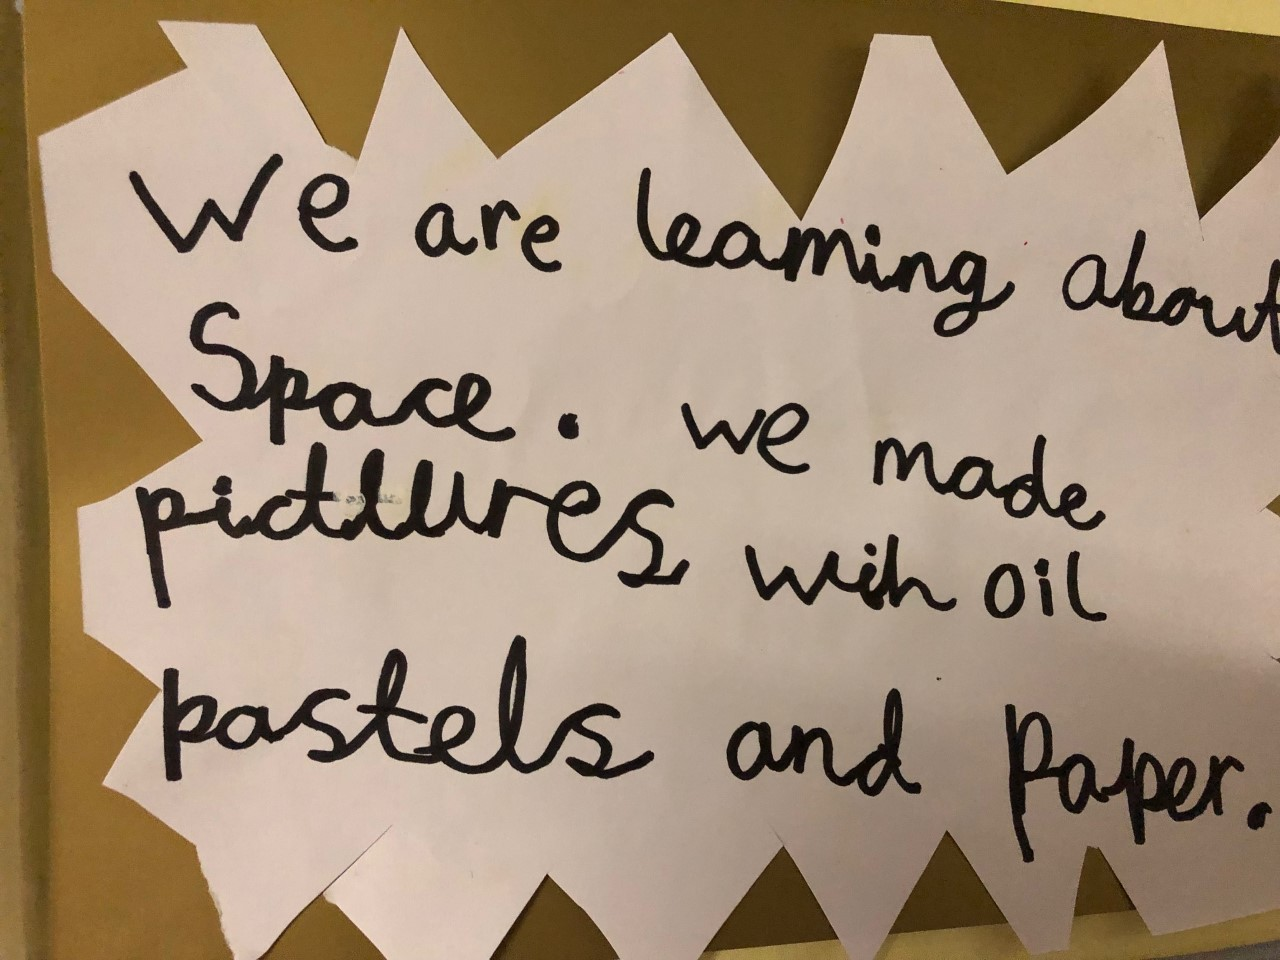 We are learning about
Space. we made
pictures with oil
pastels and paper.